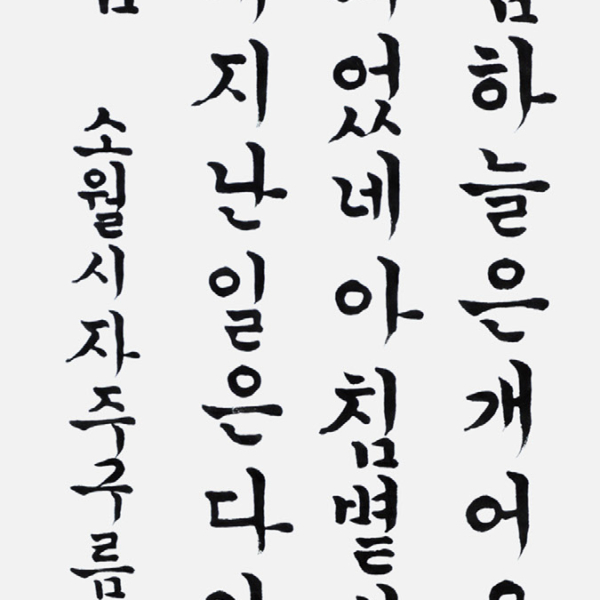 하늘은개어
었네아침볕
지난일은다
소월시자주구름